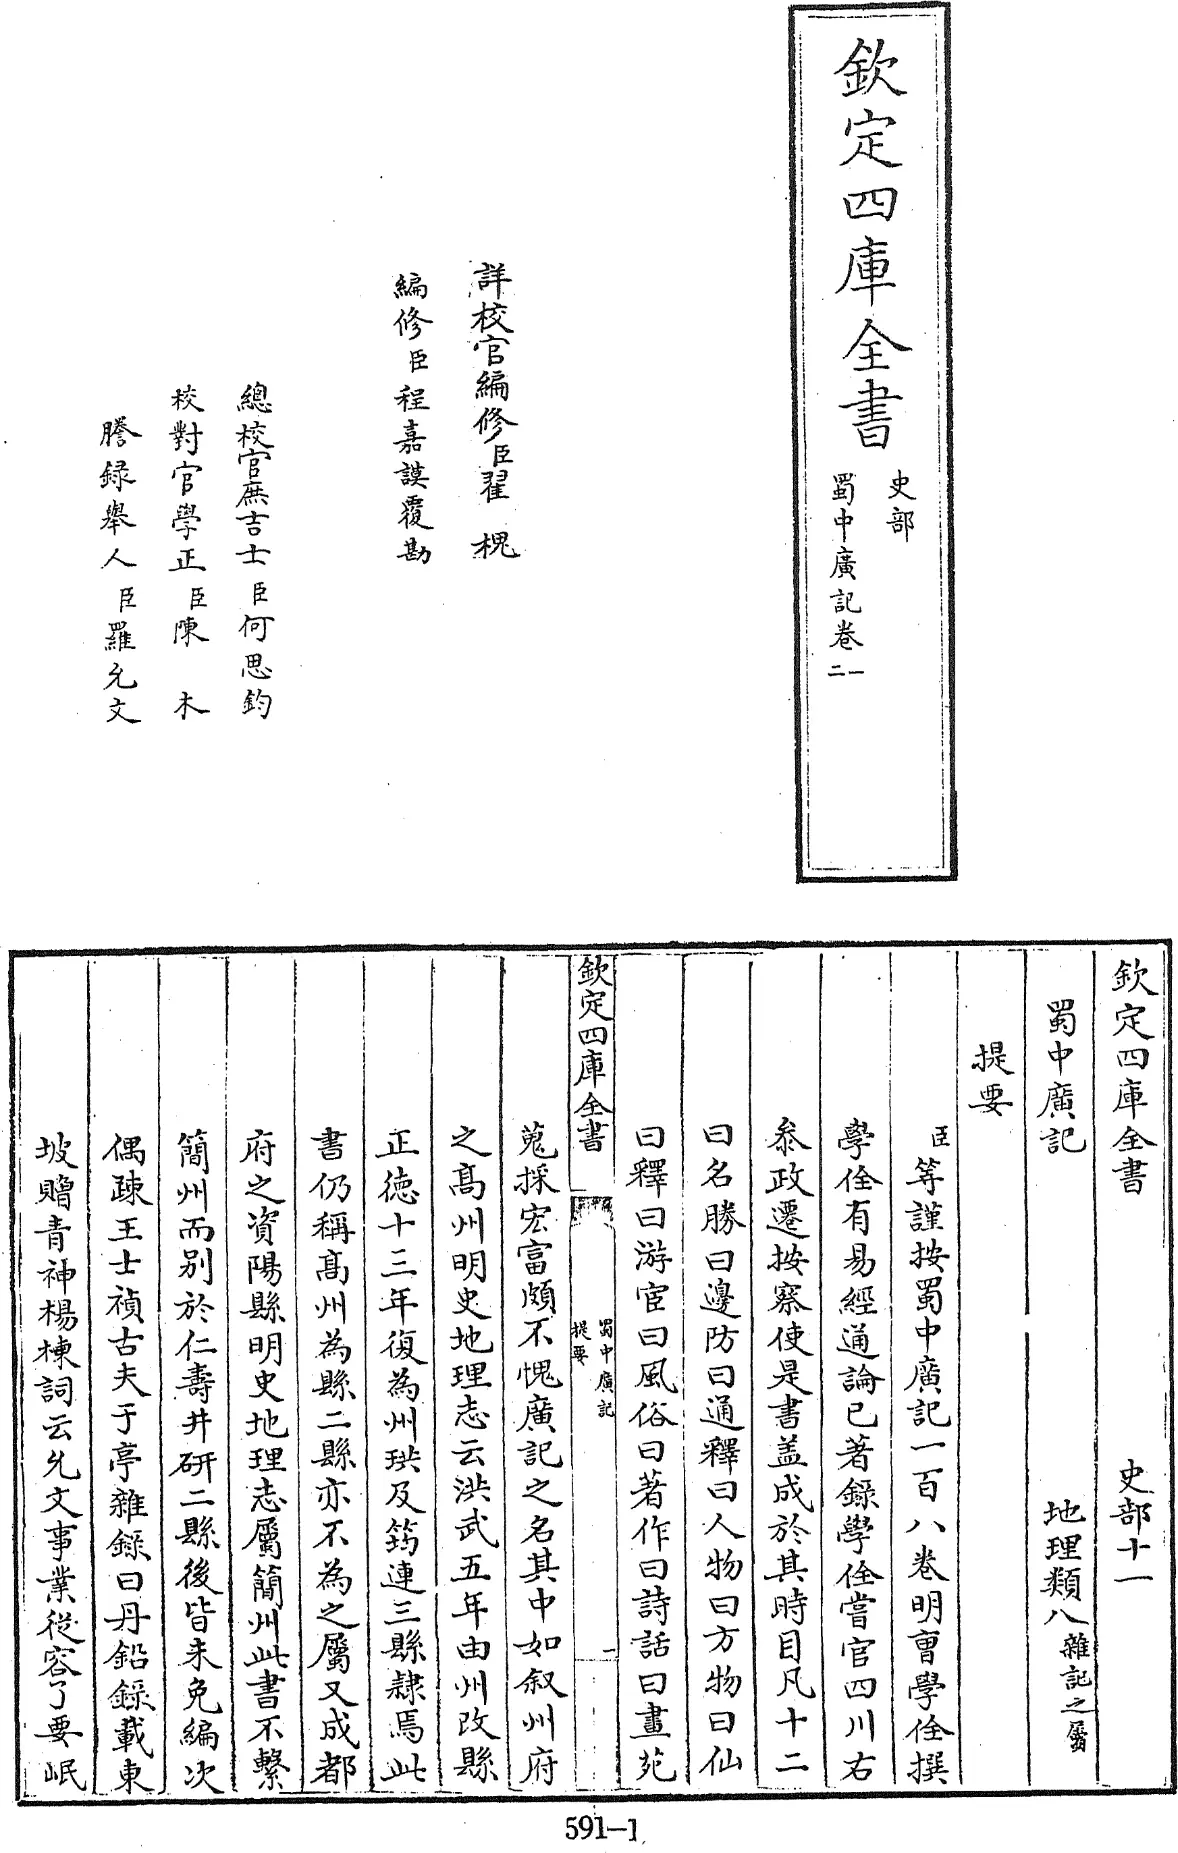 欽定四庫全書
史部
蜀中廣記卷一
二
詳校官編修臣翟槐
編修臣程嘉謨覆勘
總校官庶吉士臣何思鈞
校對官學正臣陳木
謄録舉人臣羅允文
欽定四庫全書 史部十一
蜀中廣記 地理類八雜記之屬
提要
臣等謹按蜀中廣記一百八卷明曺學佺撰
學佺有易經通論已著錄學佺嘗官四川右
叅政遷按察使是書盖成於其時目凡十二
曰名勝曰邊防曰通釋曰人物曰方物曰仙
曰釋曰游宦曰風俗曰著作曰詩話曰畫苑
欽定四庫全書
蜀中廣記
提要
一
蒐採宏富頗不愧廣記之名其中如叙州府
之髙州明史地理志云洪武五年由州改縣
正徳十三年復為州珙及筠連三縣隷焉此
書仍稱髙州為縣二縣亦不為之屬又成都
府之資陽縣明史地理志屬簡州此書不繫
簡州而别於仁壽井研二縣後皆未免編次
偶踈王士禎古夫于亭雜錄曰丹鉛錄載東
坡贈青神楊棟詞云允文事業從容了要岷
591-1